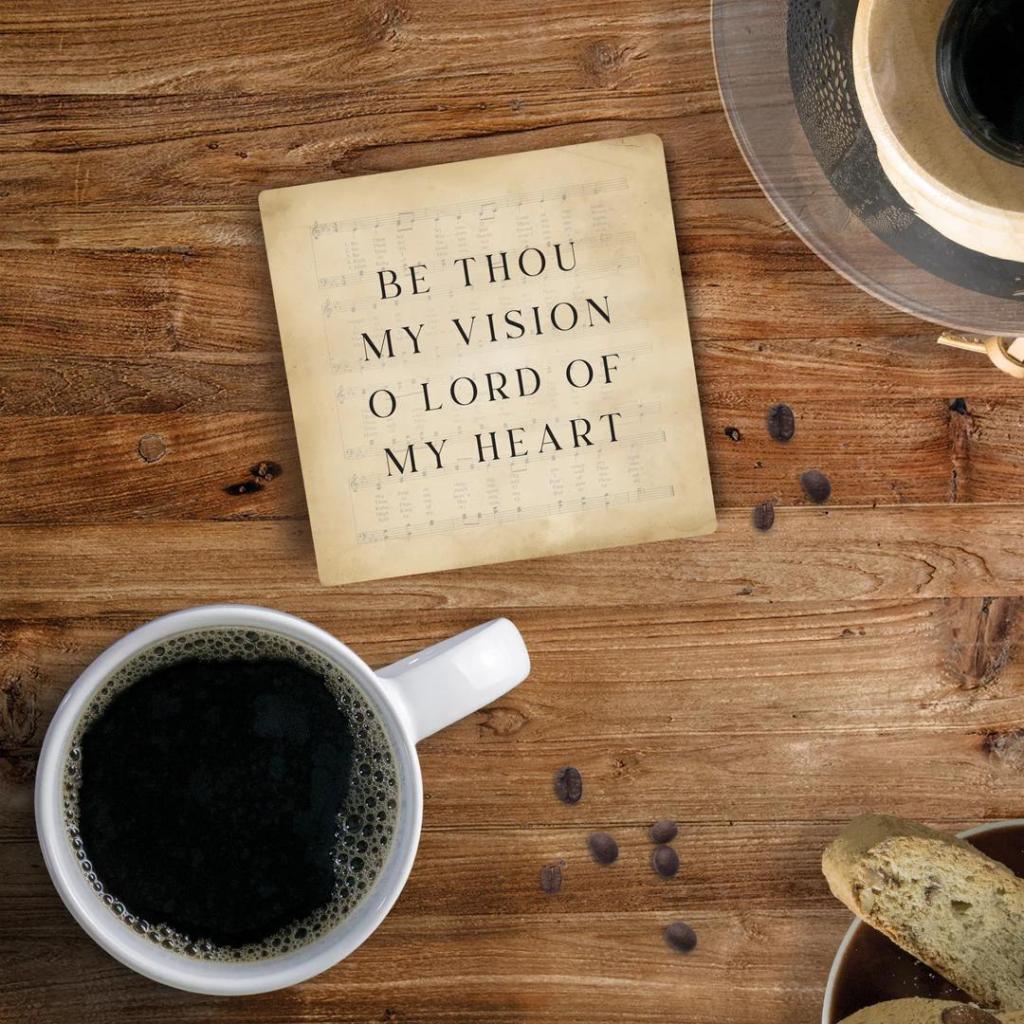 BE THOU
MY VISION
O LORD OF
MY HEART